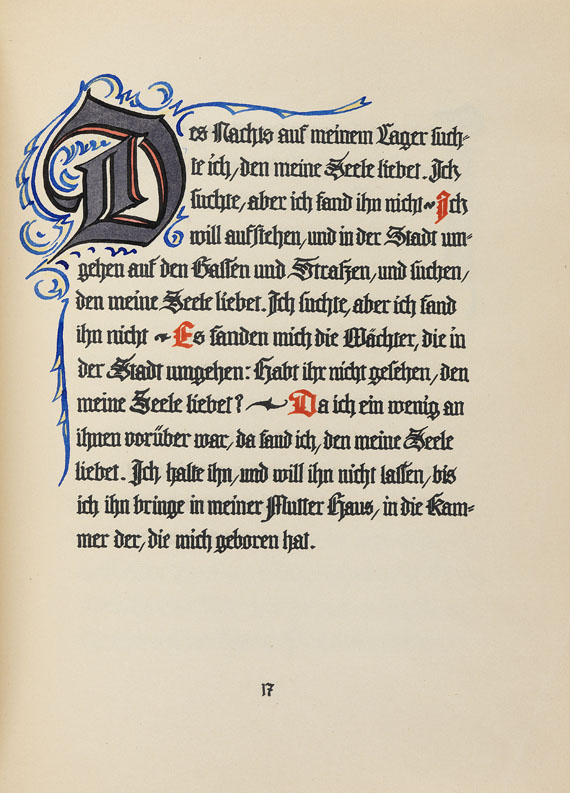 Des Nachts auf meinem Lager such-
te ich, den meine Seele liebet. Ich
suchte, aber ich fand ihn nicht ~ Ich
will aufstehen, und in der Stadt um-
gehen auf den Gassen und Straßen, und suchen,
den meine Seele liebet. Ich suchte, aber ich fand
ihn nicht ~ Es fanden mich die Wächter, die in
der Stadt umgehen: Habt ihr nicht gesehen, den
meine Seele liebet? ~ Da ich ein wenig an
ihnen vorüber war, da fand ich, den meine Seele
liebet. Ich halte ihn, und will ihn nicht lassen, bis
ich ihn bringe in meiner Mutter Haus, in die Kam-
mer der, die mich geboren hat.
17